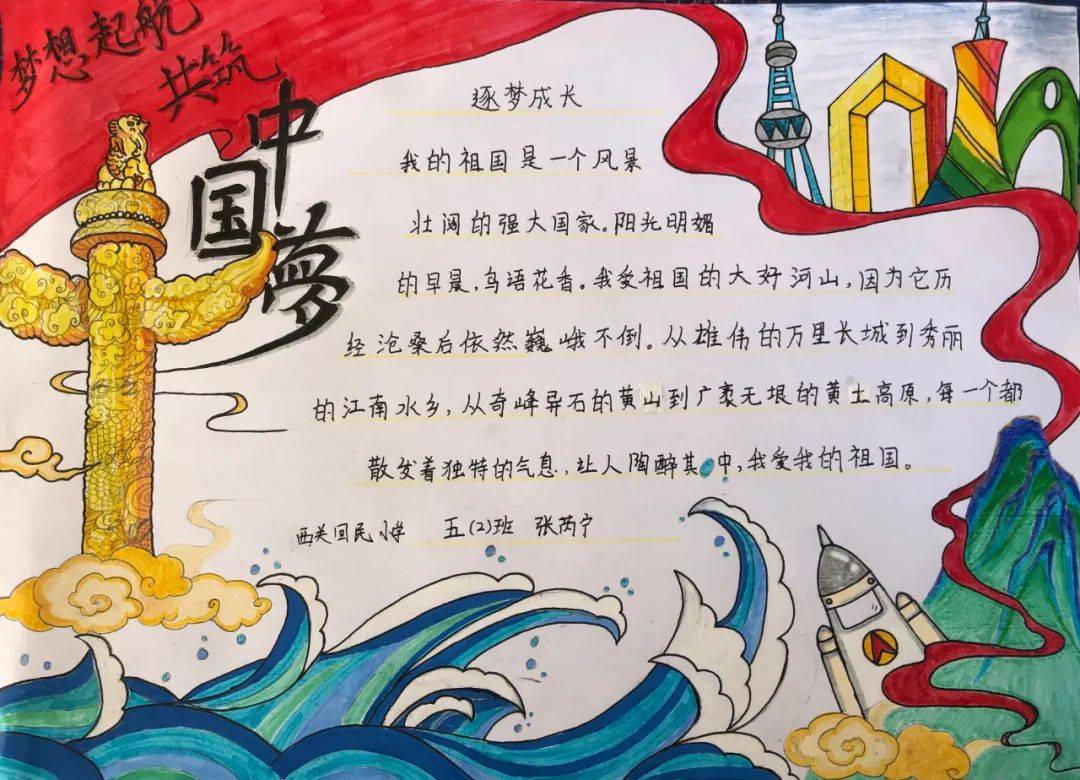 梦想起航
共筑
中国夢
逐梦成长
我的祖国是一个风景
壮阔的强大国家。阳光明媚
的早晨,鸟语花香。我爱祖国的大好河山,因为它历
经沧桑后依然巍峨不倒。从雄伟的万里长城到秀丽
的江南水乡,从奇峰异石的黄山到广袤无垠的黄土高原,每一个都
散发着独特的气息,让人陶醉其中,我爱我的祖国。
西关回民小学 五(2)班 张芮宁